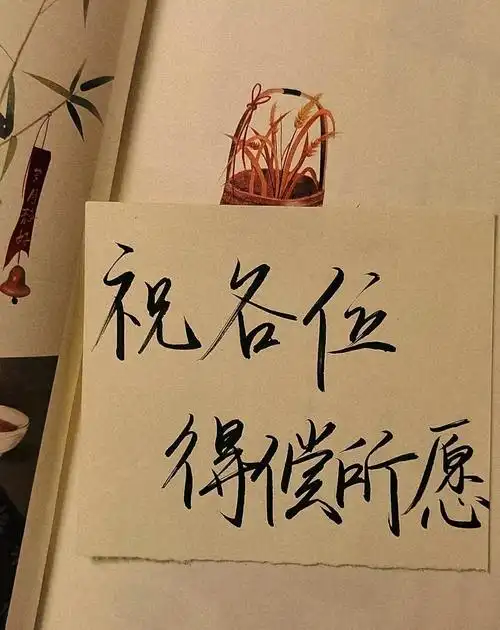 祝各位
得偿所愿